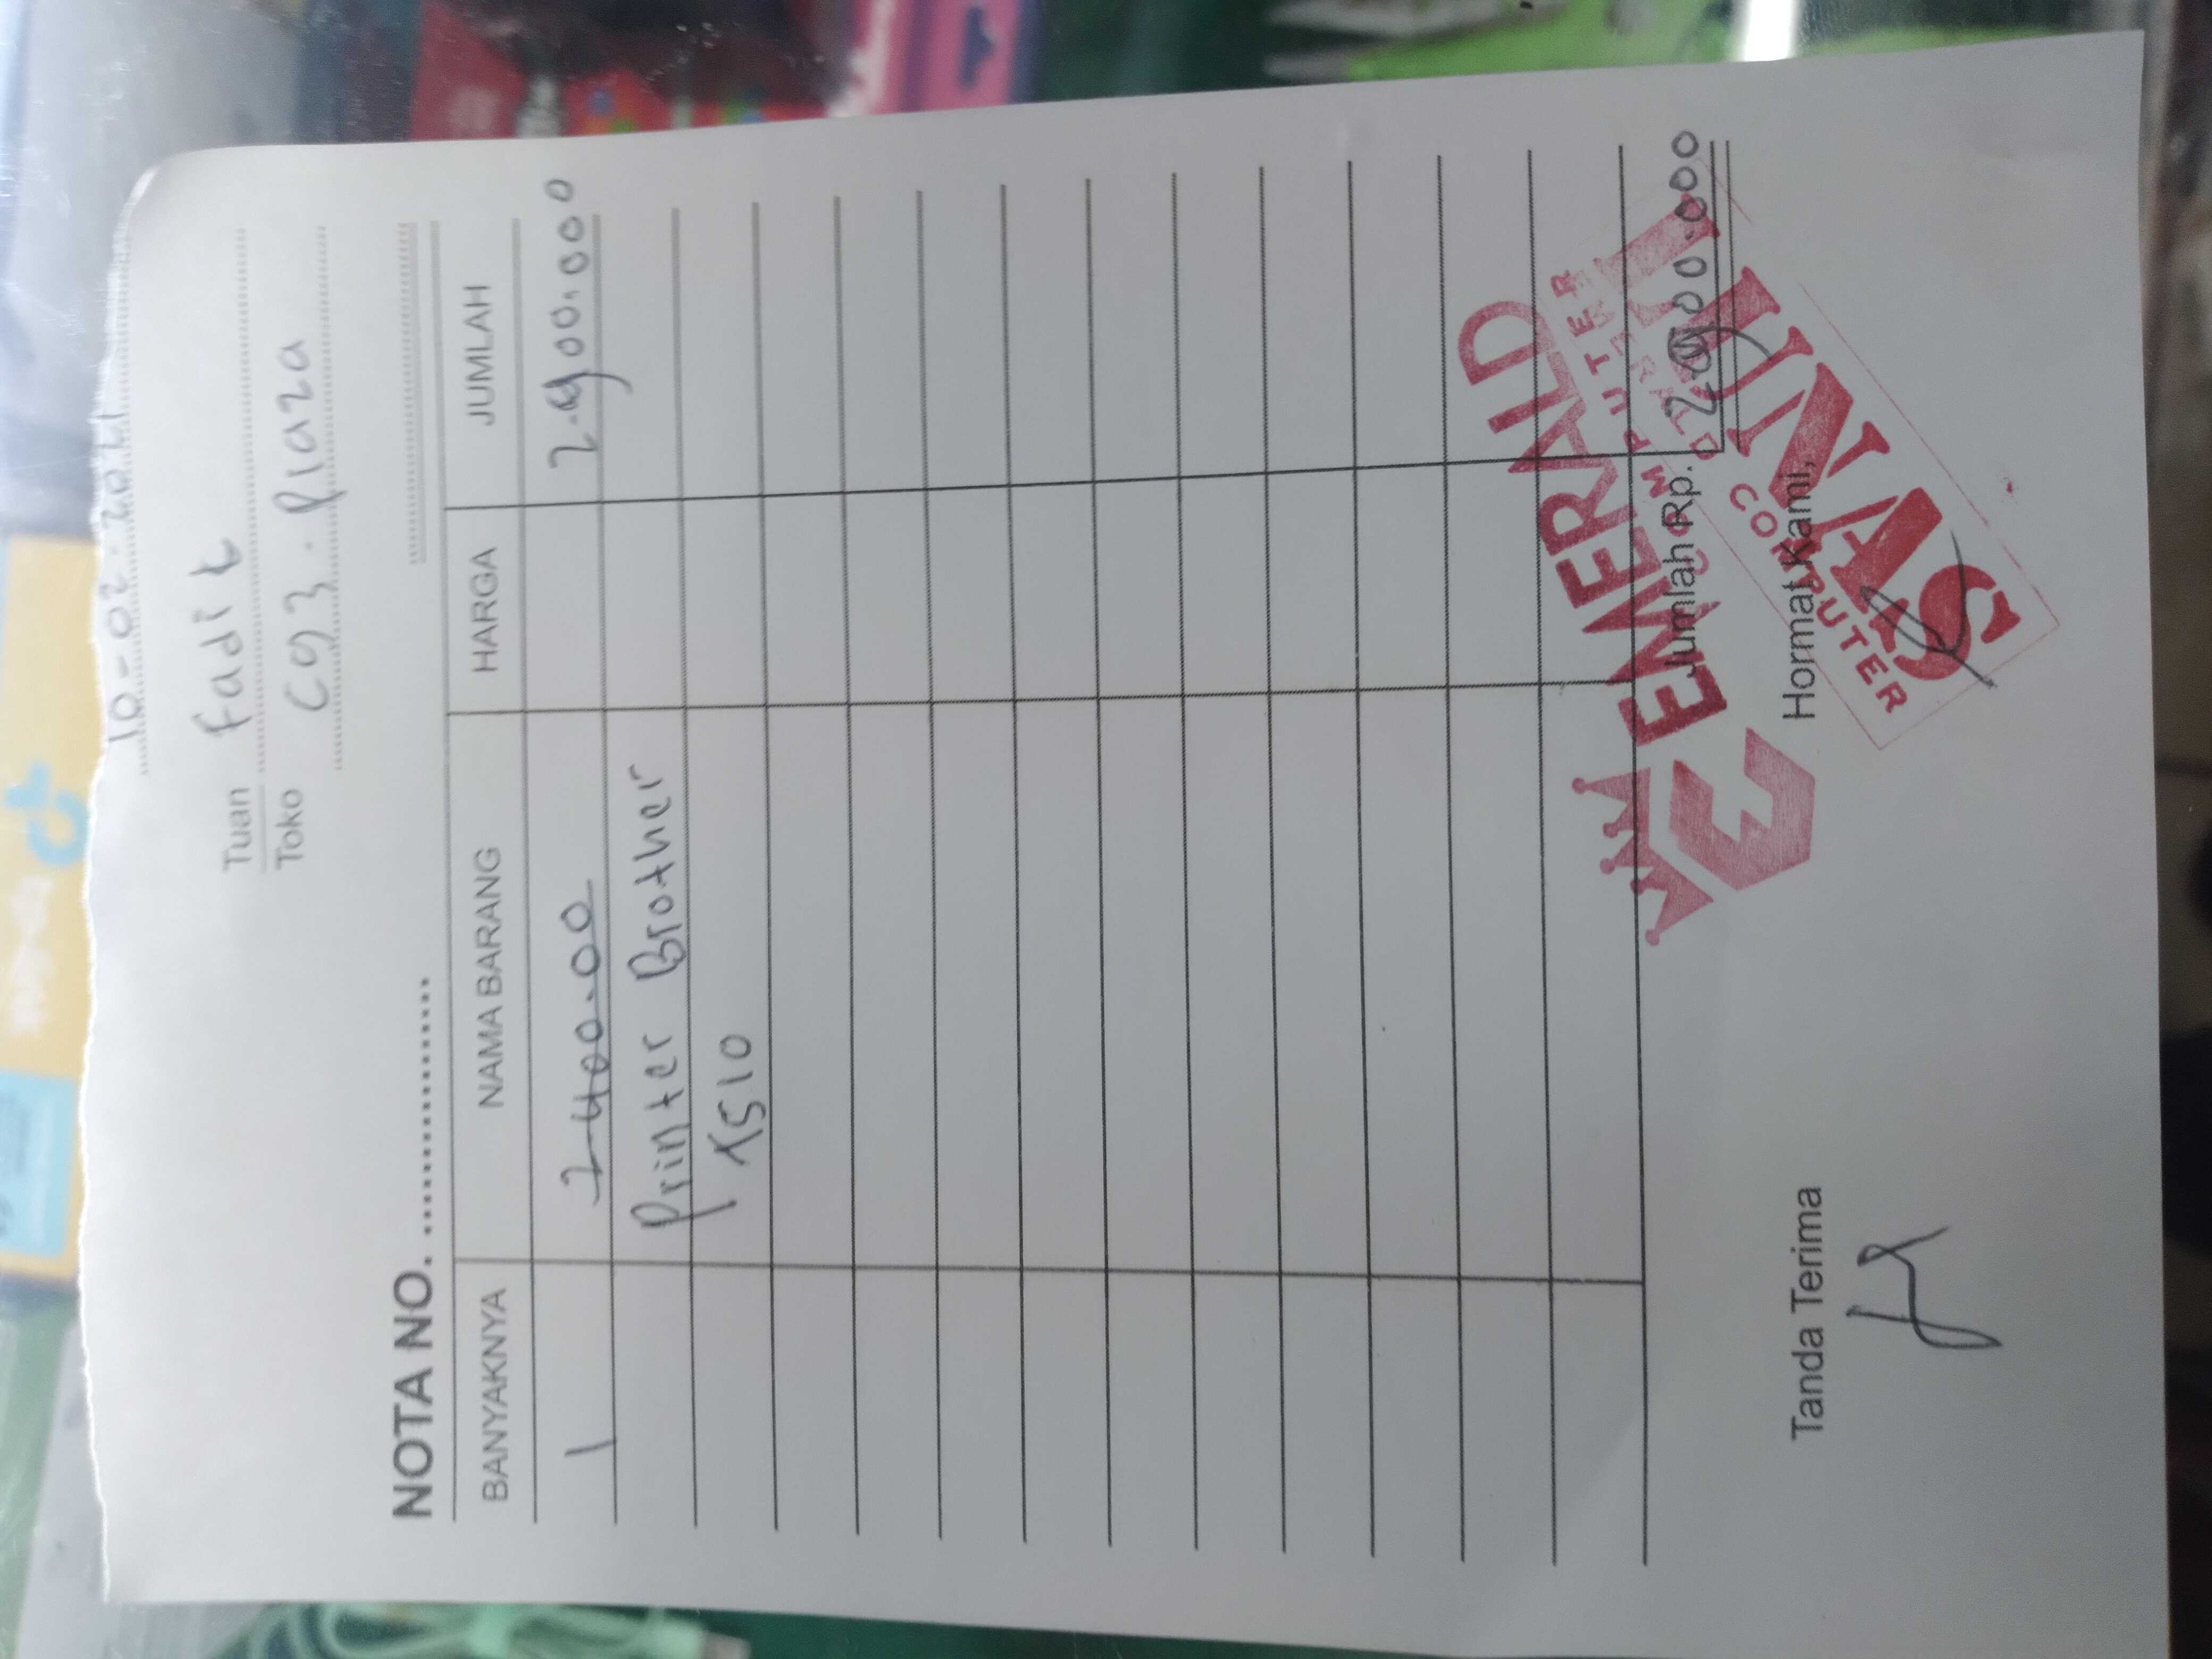 10-02-2021
Tuan Fadit
Toko C93. Plaza
NOTA NO. ....................
BANYAKNYA NAMA BARANG HARGA JUMLAH
1 2400.00 2.900.000
Printer Brother
T510
Jumlah Rp. 2.900.000
Tanda Terima Hormat Kami,
EMERALD
COMPUTER
LUNAS
EMERALD
COMPUTER